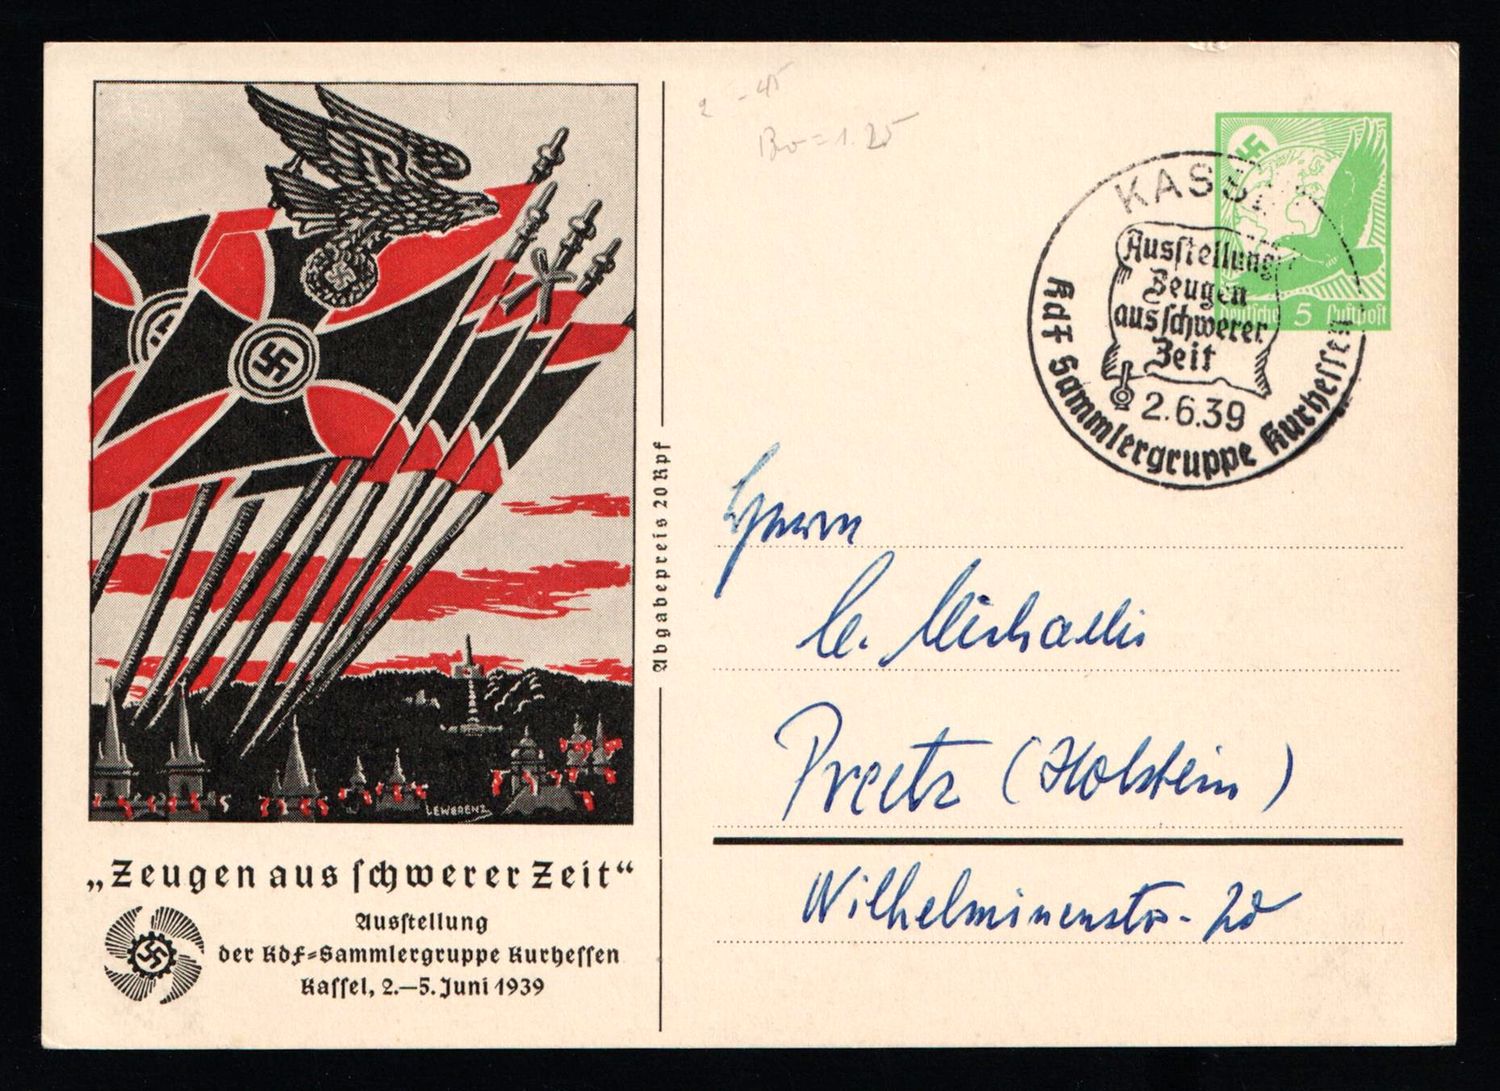 LEWERENZ
„Zeugen aus schwerer Zeit“
Ausstellung
der KdF-Sammlergruppe Kurhessen
Kassel, 2.—5. Juni 1939
Abgabepreis 20 Rpf
2 - 45
= 1.25
Deutsche 5 Luftpost
KASSEL
Ausstellung
Zeugen
aus schwerer
Zeit
2.6.39
KdF Sammlergruppe Kurhessen
Herrn
C. Michaelis
Preetz (Holstein)
Wilhelminenstr. 20